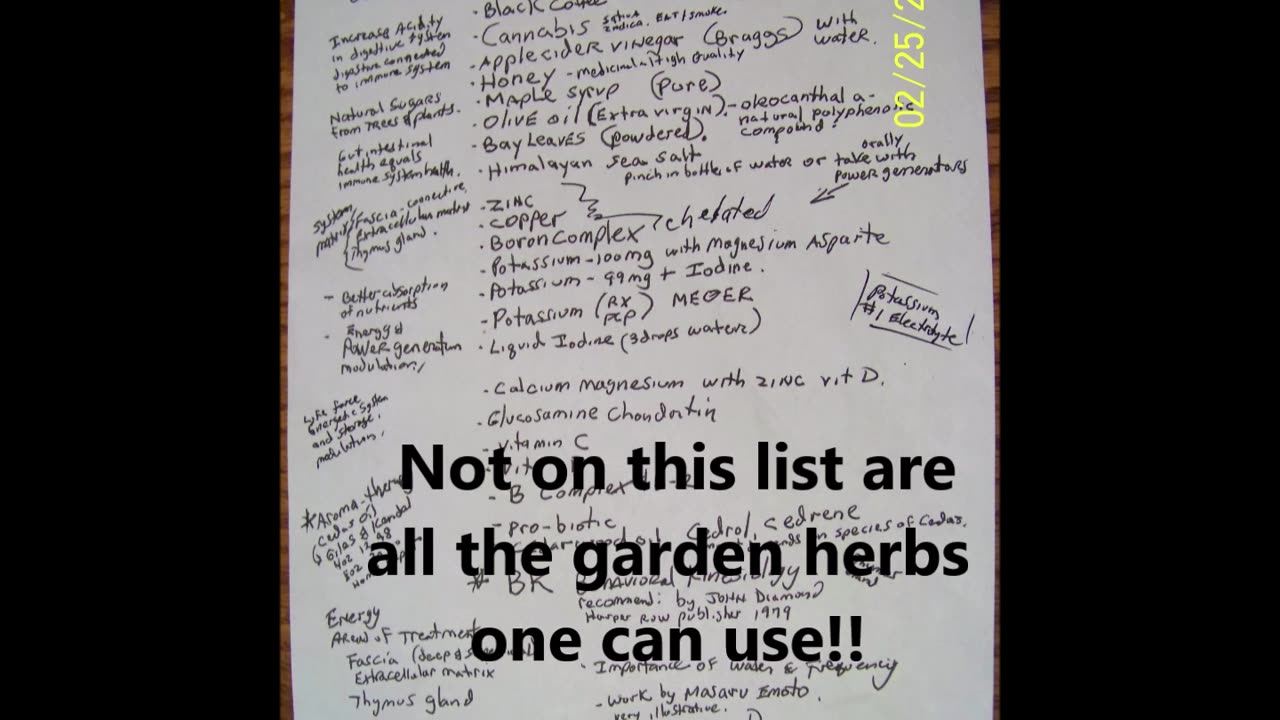 · Black Coffee
· Cannabis sativa indica. EAT/smoke.
· Apple cider vinegar (Braggs) with water.
· Honey - medicinal - High Quality
· Maple syrup (pure)
· Olive oil (Extra virgin). - oleocanthal a natural polyphenolic compound!
· Bay Leaves (powdered).
· Himalayan sea salt
pinch in bottle of water or take with orally power generators
· ZINC
· copper
· Boron complex
chelated
· Potassium - 100mg with Magnesium Asparte
· Potassium - 99mg + Iodine.
· Potassium (RX PCP)
· Liquid Iodine (3 drops water)
Potassium
#1 Electrolyte
· Calcium magnesium with zinc vit D.
· Glucosamine Chondortin
- vitamin C
- B Complex
- pro-biotic
Cedrol, cedrene
species of Cedar.
* BK Behavioral Kinesiology
recommend: by JOHN Diamond
Harper Row publisher 1979
· Importance of water & Frequency
- work by Masaru Emoto.
very illustrative.
Increase Acidity
in digestive system
digestive connected
to immune system
Natural Sugars
from Trees & plants.
Gut intestinal
health equals
immune system health.
System
matrix
Fascia - connective
Extracellular matrix
Thymus gland.
- Better absorption
of nutrients
· Energy &
Power generation
modulation
Life force
energetic system
and storage
modulation.
* Aroma-therapy
Cedar oil
Energy
Area of Treatment
Fascia (deep &
Extracellular matrix
Thymus gland
02/25/2
Not on this list are
all the garden herbs
one can use!!